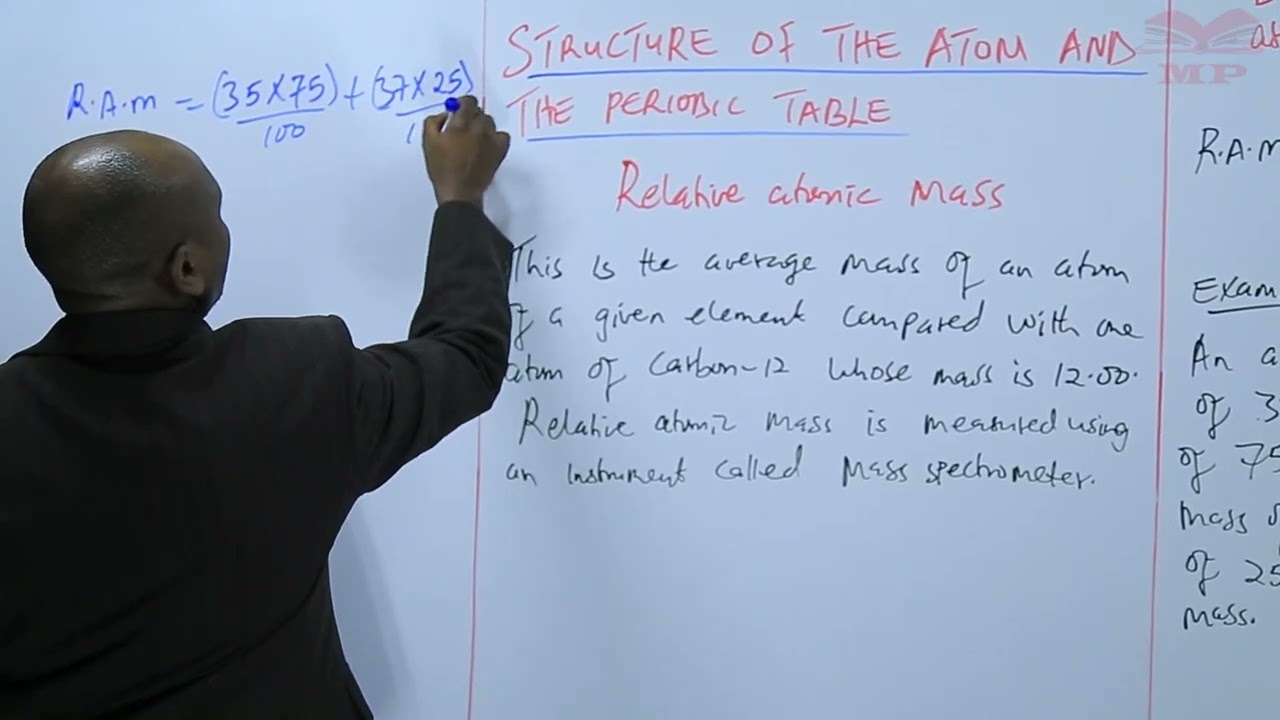 R.A.m = (35×75) + (37×25)
100 1
STRUCTURE OF THE ATOM AND
THE PERIODIC TABLE
Relative atomic Mass
This is the average mass of an atom
of a given element compared with one
atom of Carbon-12 whose mass is 12.00.
Relative atomic mass is measured using
an instrument called Mass spectrometer.
as
MP
R.A.M
Exam
An a
of 3
of 75
Mass
of 25
mass.